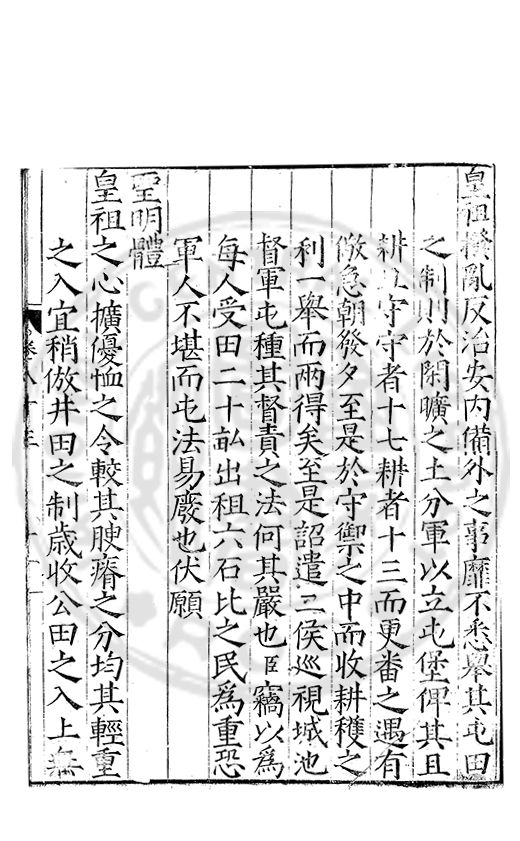 皇祖撥亂反治安内備外之事靡不悉舉其屯田
之制則於閑曠之土分軍以立屯堡俾其且
耕且守守者十七耕者十三而更番之遇有
儆急朝發夕至是於守禦之中而收耕穫之
利一舉而兩得矣至是詔遣三侯巡視城池
督軍屯種其督責之法何其嚴也臣竊以爲
每人受田二十畝出租六石比之民爲重恐
軍人不堪而屯法易廢也伏願
聖明體
皇祖之心擴優恤之令較其腴瘠之分均其輕重
之入宜稍倣井田之制歲收公田之入上無